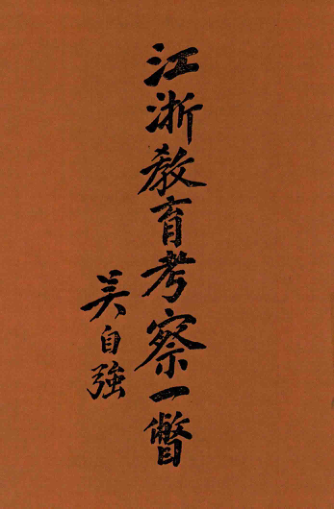 江浙教育考察一瞥
吴自強